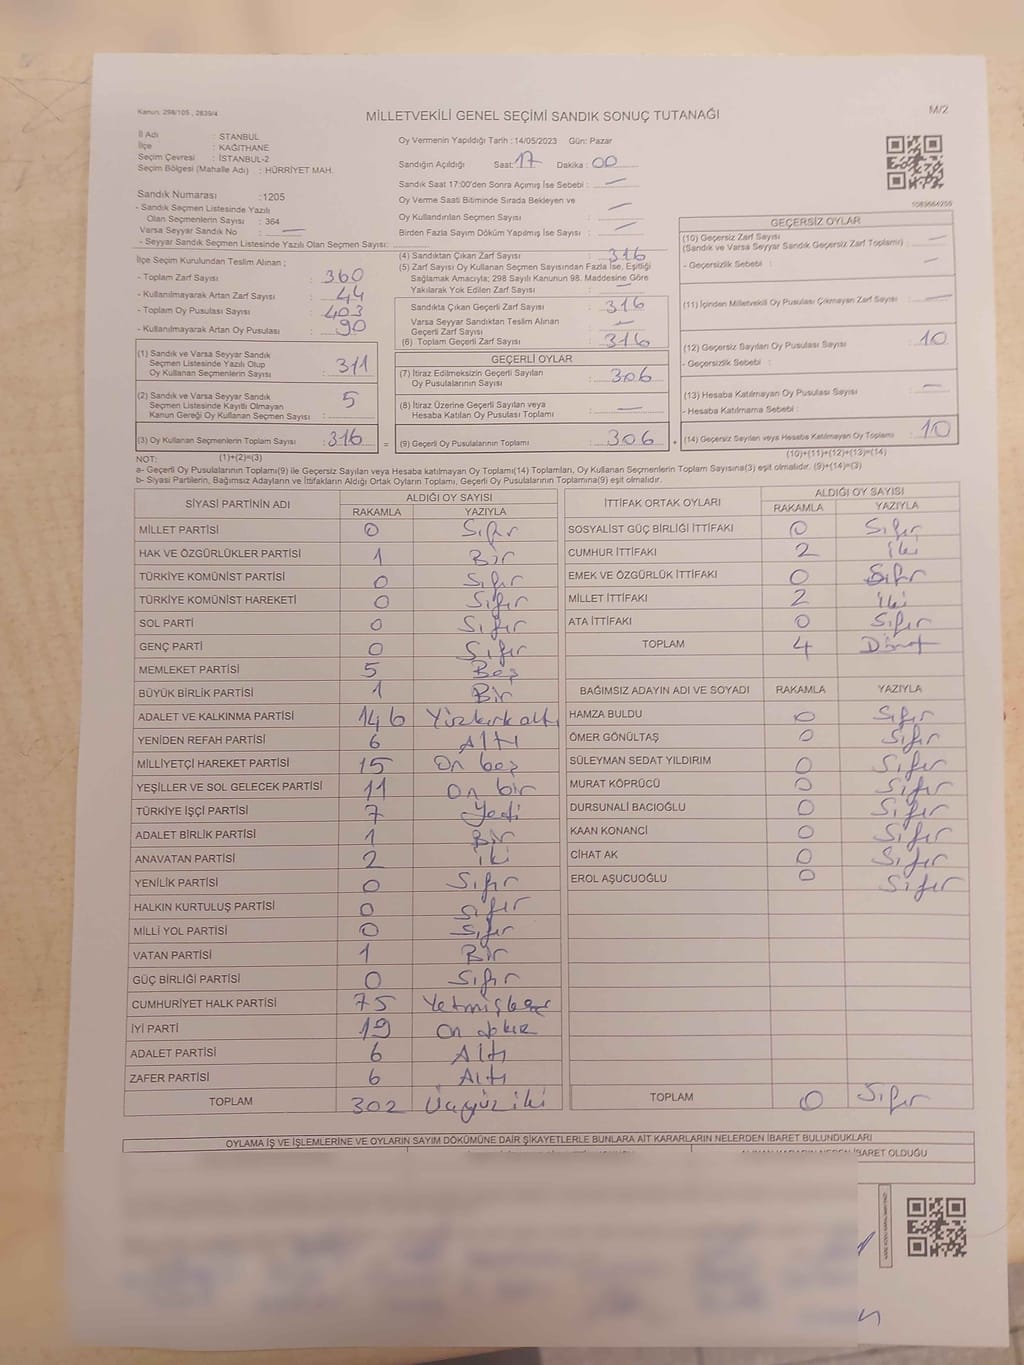 Kanun: 298/105 , 2839/4
MİLLETVEKİLİ GENEL SEÇİMİ SANDIK SONUÇ TUTANAĞI
M/2
İl Adı : İSTANBUL
İlçe : KAĞITHANE
Seçim Çevresi : İSTANBUL-2
Seçim Bölgesi (Mahalle Adı) : HÜRRİYET MAH.
Sandık Numarası :1205
- Sandık Seçmen Listesinde Yazılı
Olan Seçmenlerin Sayısı : 364
Varsa Seyyar Sandık No : —
- Seyyar Sandık Seçmen Listesinde Yazılı Olan Seçmen Sayısı:
Oy Vermenin Yapıldığı Tarih : 14/05/2023 Gün: Pazar
Sandığın Açıldığı Saat: 17 Dakika : 00
Sandık Saat 17:00'den Sonra Açımış İse Sebebi : —
Oy Verme Saati Bitiminde Sırada Bekleyen ve
Oy Kullandırılan Seçmen Sayısı : —
Birden Fazla Sayım Döküm Yapılmış İse Sayısı : —
1089664259
İlçe Seçim Kurulundan Teslim Alınan ;
- Toplam Zarf Sayısı : 360
- Kullanılmayarak Artan Zarf Sayısı : 44
- Toplam Oy Pusulası Sayısı : 403
- Kullanılmayarak Artan Oy Pusulası : 90
(1) Sandık ve Varsa Seyyar Sandık
Seçmen Listesinde Yazılı Olup
Oy Kullanan Seçmenlerin Sayısı : 311
(2) Sandık ve Varsa Seyyar Sandık
Seçmen Listesinde Kayıtlı Olmayan
Kanun Gereği Oy Kullanan Seçmen Sayısı : 5
(3) Oy Kullanan Seçmenlerin Toplam Sayısı : 316 =
(4) Sandıktan Çıkan Zarf Sayısı : 316
(5) Zarf Sayısı Oy Kullanan Seçmen Sayısından Fazla İse, Eşitliği
Sağlamak Amacıyla; 298 Sayılı Kanunun 98. Maddesine Göre
Yakılarak Yok Edilen Zarf Sayısı : —
Sandıkta Çıkan Geçerli Zarf Sayısı : 316
Varsa Seyyar Sandıktan Teslim Alınan
Geçerli Zarf Sayısı : —
(6) Toplam Geçerli Zarf Sayısı : 316
GEÇERLİ OYLAR
(7) İtiraz Edilmeksizin Geçerli Sayılan
Oy Pusulalarının Sayısı : 306
(8) İtiraz Üzerine Geçerli Sayılan veya
Hesaba Katılan Oy Pusulası Toplamı : —
(9) Geçerli Oy Pusulalarının Toplamı : 306 +
GEÇERSİZ OYLAR
(10) Geçersiz Zarf Sayısı
(Sandık ve Varsa Seyyar Sandık Geçersiz Zarf Toplamı) : —
- Geçersizlik Sebebi : —
(11) İçinden Milletvekili Oy Pusulası Çıkmayan Zarf Sayısı : —
(12) Geçersiz Sayılan Oy Pusulası Sayısı : 10
- Geçersizlik Sebebi :
(13) Hesaba Katılmayan Oy Pusulası Sayısı : —
- Hesaba Katılmama Sebebi :
(14) Geçersiz Sayılan veya Hesaba Katılmayan Oy Toplamı : 10
NOT: (1)+(2)=(3) (10)+(11)+(12)+(13)=(14)
a- Geçerli Oy Pusulalarının Toplamı(9) ile Geçersiz Sayılan veya Hesaba katılmayan Oy Toplamı(14) Toplamları, Oy Kullanan Seçmenlerin Toplam Sayısına(3) eşit olmalıdır. (9)+(14)=(3)
b- Siyasi Partilerin, Bağımsız Adayların ve İttifakların Aldığı Ortak Oyların Toplamı, Geçerli Oy Pusulalarının Toplamına(9) eşit olmalıdır.
SİYASİ PARTİNİN ADI ALDIĞI OY SAYISI
RAKAMLA YAZIYLA
MİLLET PARTİSİ 0 Sıfır
HAK VE ÖZGÜRLÜKLER PARTİSİ 1 Bir
TÜRKİYE KOMÜNİST PARTİSİ 0 Sıfır
TÜRKİYE KOMÜNİST HAREKETİ 0 Sıfır
SOL PARTİ 0 Sıfır
GENÇ PARTİ 0 Sıfır
MEMLEKET PARTİSİ 5 Beş
BÜYÜK BİRLİK PARTİSİ 1 Bir
ADALET VE KALKINMA PARTİSİ 146 Yüzkırkaltı
YENİDEN REFAH PARTİSİ 6 Altı
MİLLİYETÇİ HAREKET PARTİSİ 15 On beş
YEŞİLLER VE SOL GELECEK PARTİSİ 11 On bir
TÜRKİYE İŞÇİ PARTİSİ 7 Yedi
ADALET BİRLİK PARTİSİ 1 Bir
ANAVATAN PARTİSİ 2 iki
YENİLİK PARTİSİ 0 Sıfır
HALKIN KURTULUŞ PARTİSİ 0 Sıfır
MİLLİ YOL PARTİSİ 0 Sıfır
VATAN PARTİSİ 1 Bir
GÜÇ BİRLİĞİ PARTİSİ 0 Sıfır
CUMHURİYET HALK PARTİSİ 75 Yetmişbeş
İYİ PARTİ 19 On dokuz
ADALET PARTİSİ 6 Altı
ZAFER PARTİSİ 6 Altı
TOPLAM 302 Üçyüziki
İTTİFAK ORTAK OYLARI ALDIĞI OY SAYISI
RAKAMLA YAZIYLA
SOSYALİST GÜÇ BİRLİĞİ İTTİFAKI 0 Sıfır
CUMHUR İTTİFAKI 2 iki
EMEK VE ÖZGÜRLÜK İTTİFAKI 0 Sıfır
MİLLET İTTİFAKI 2 iki
ATA İTTİFAKI 0 Sıfır
TOPLAM 4 Dört
BAĞIMSIZ ADAYIN ADI VE SOYADI RAKAMLA YAZIYLA
HAMZA BULDU 0 Sıfır
ÖMER GÖNÜLTAŞ 0 Sıfır
SÜLEYMAN SEDAT YILDIRIM 0 Sıfır
MURAT KÖPRÜCÜ 0 Sıfır
DURSUNALİ BACIOĞLU 0 Sıfır
KAAN KONANCİ 0 Sıfır
CİHAT AK 0 Sıfır
EROL AŞUCUOĞLU 0 Sıfır
TOPLAM 0 Sıfır
OYLAMA İŞ VE İŞLEMLERİNE VE OYLARIN SAYIM DÖKÜMÜNE DAİR ŞİKAYETLERLE BUNLARA AİT KARARLARIN NELERDEN İBARET BULUNDUKLARI
İBARET OLDUĞU